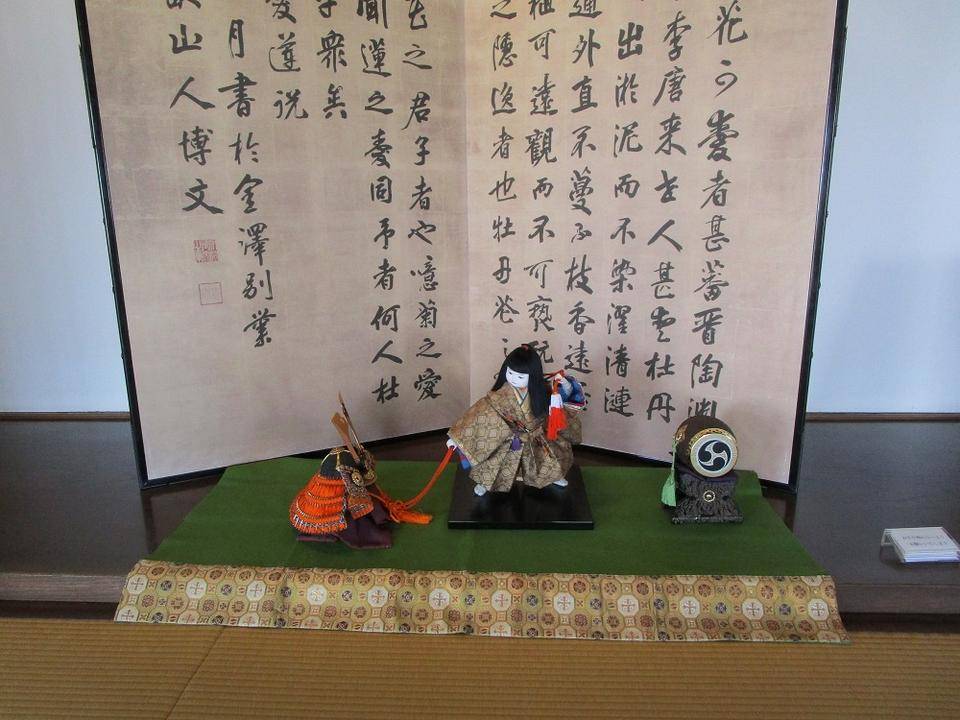 花可愛者甚蕃晋陶淵
李唐来世人甚愛牡丹
出淤泥而不染濯清漣
通外直不蔓不枝香遠
植可遠觀而不可褻玩
之隠逸者也牡丹花之
花之君子者也噫菊之愛
聞蓮之愛同予者何人牡
乎衆矣
愛蓮説
月書於金澤別業
山人博文